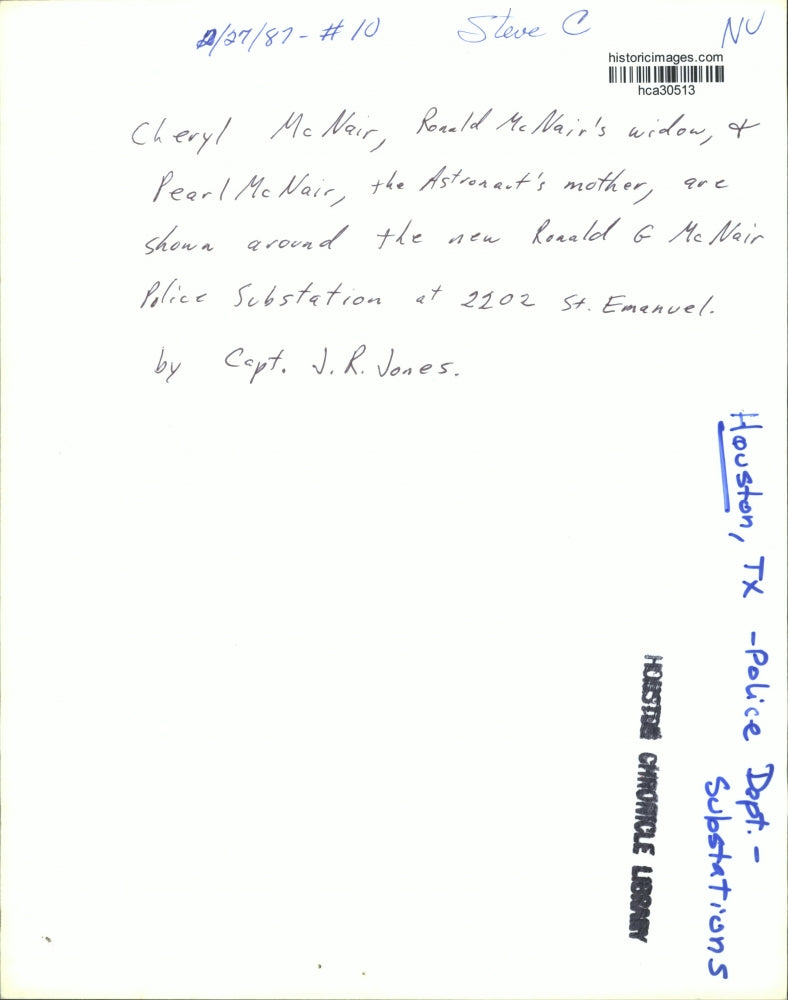 2/27/87 - #10
Steve C
NU
historicimages.com
hca30513
Cheryl McNair, Ronald McNair's widow, &
Pearl McNair, the Astronaut's mother, are
shown around the new Ronald G McNair
Police Substation at 2202 St. Emanuel.
by Capt. J.R. Jones.
Houston, TX - Police Dept. -
Substations
HOUSTON CHRONICLE LIBRARY